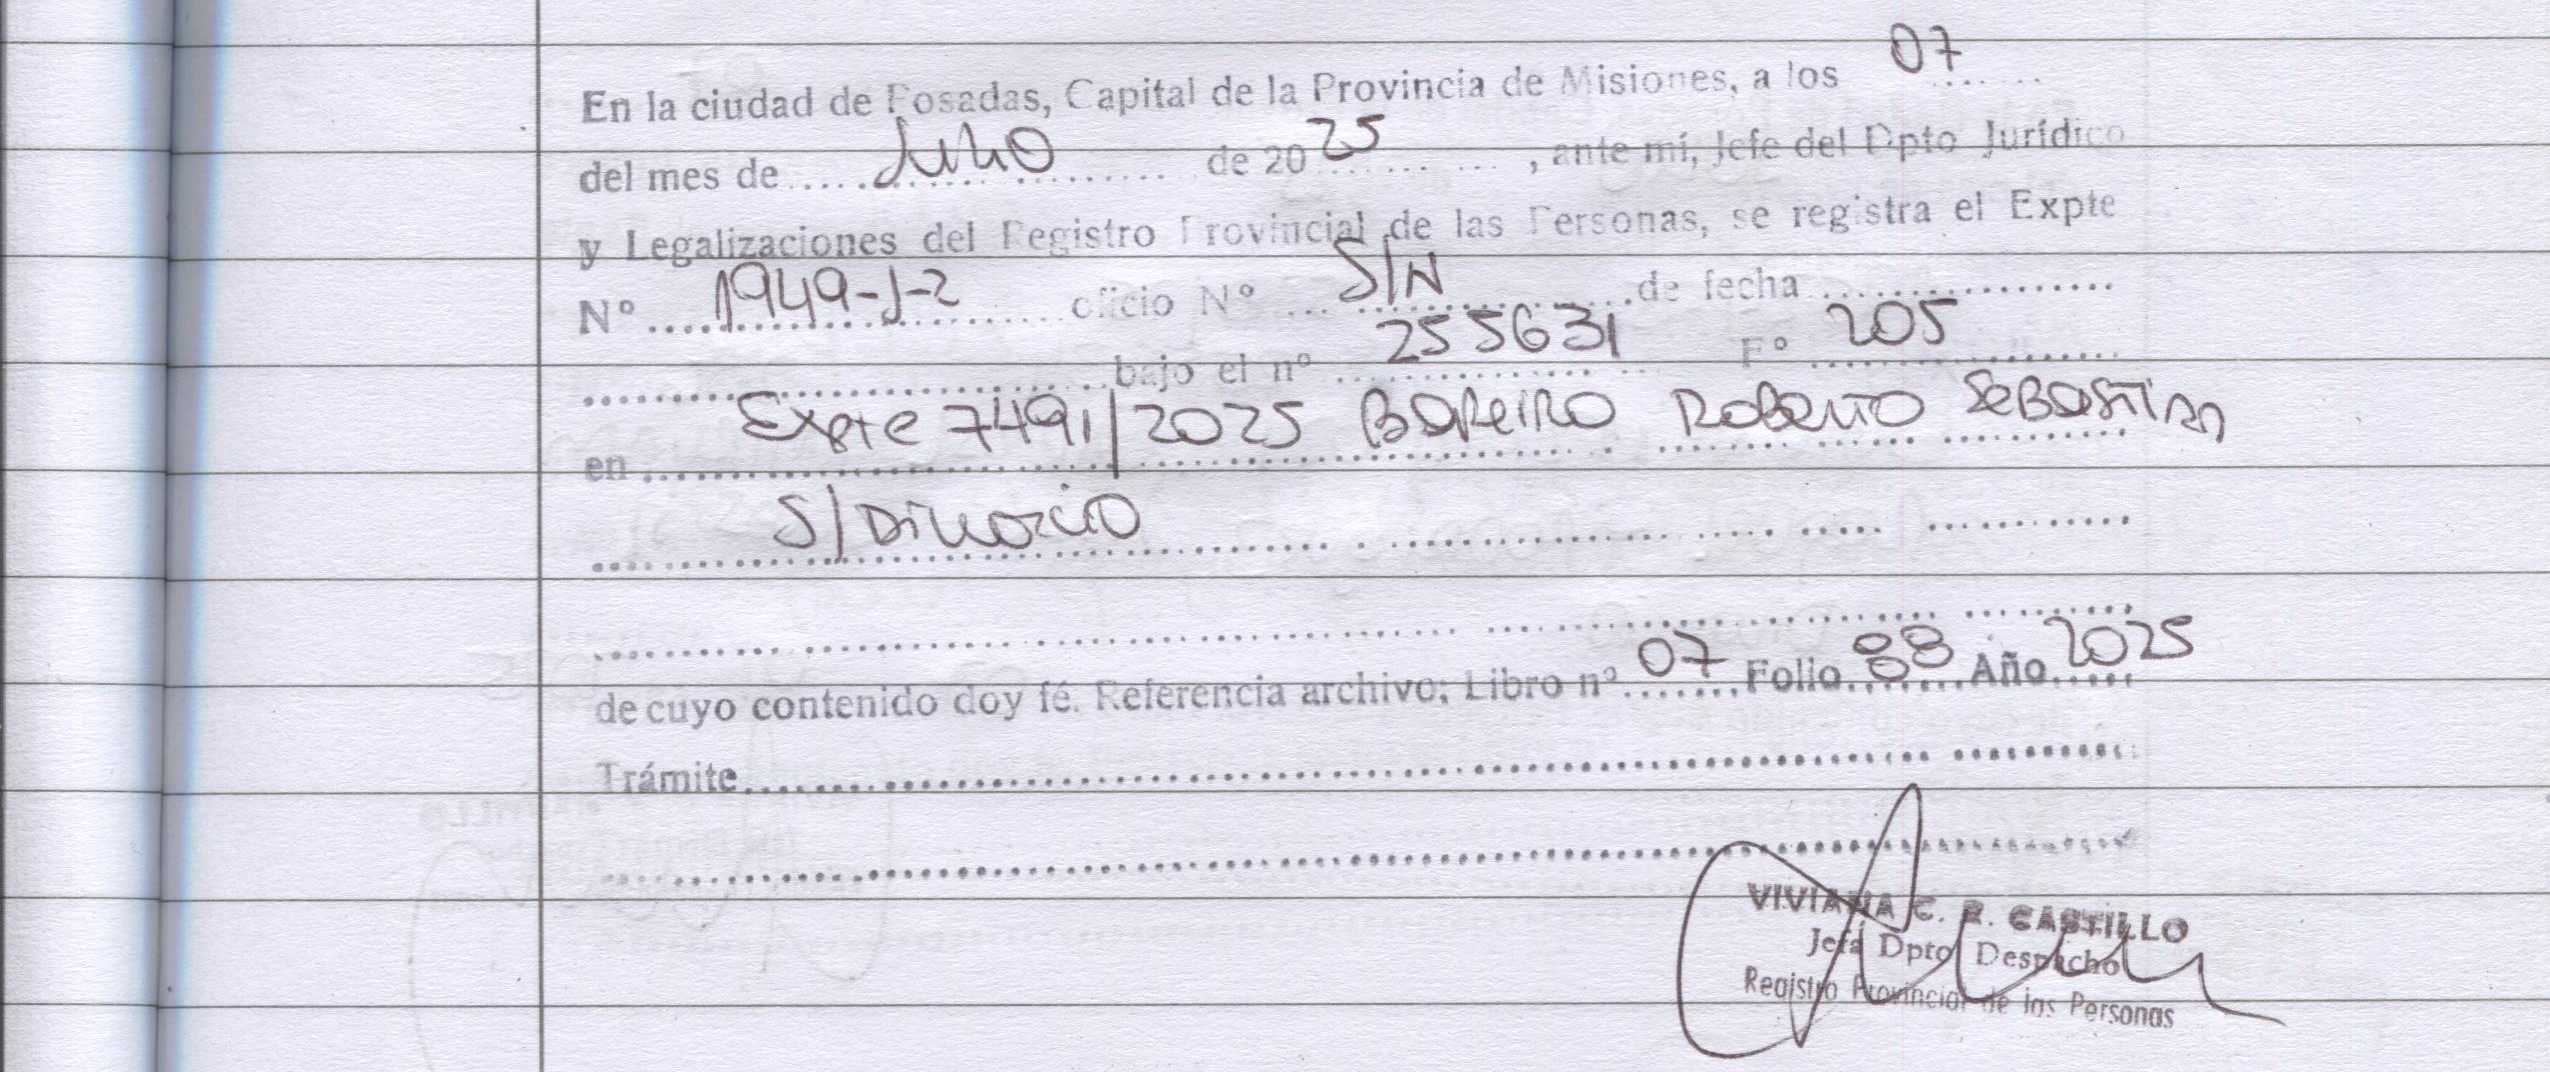 En la ciudad de Posadas, Capital de la Provincia de Misiones, a los 07
del mes de Julio de 2025, ante mí, Jefe del Dpto Jurídico
y Legalizaciones del Registro Provincial de las Personas, se registra el Expte
Nº 1949-J-2 oficio Nº S/N de fecha
bajo el nº 255631 Fº 205
en Expte 7491/2025 Bareiro Roberto Sebastian
S/Divorcio
de cuyo contenido doy fé. Referencia archivo: Libro nº 07 Folio 88 Año 2025
Trámite
VIVIANA C. R. CASTILLO
Jefa Dpto Despacho
Registro Provincial de las Personas